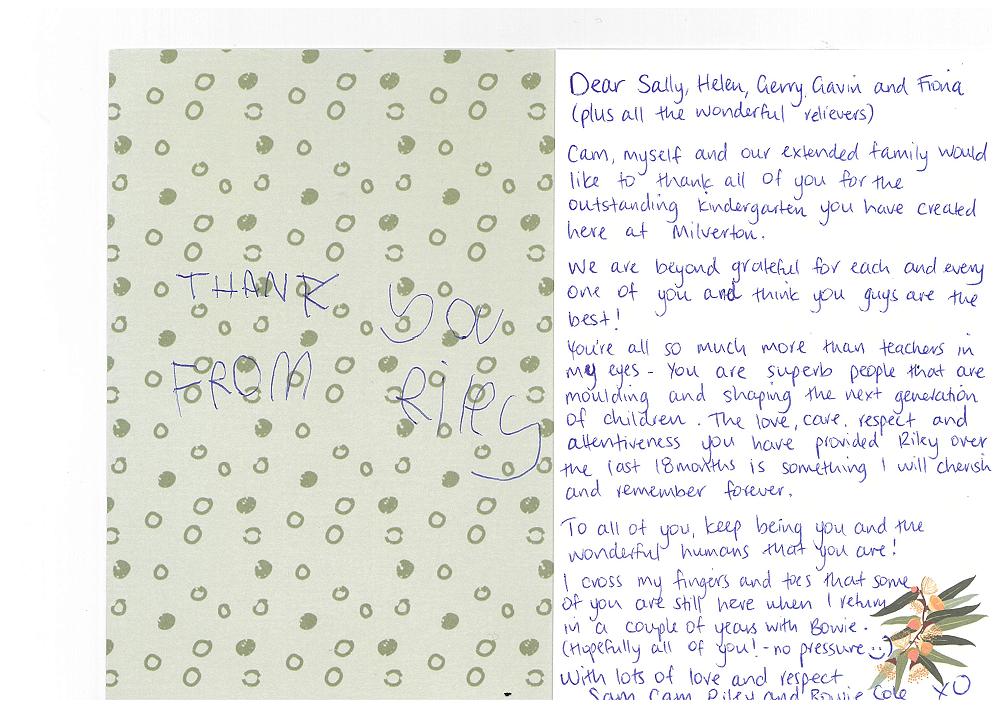 THANK YOU
FROM RILEY
Dear Sally, Helen, Gerry, Gavin and Fiona
(plus all the wonderful relievers)
Cam, myself and our extended family would
like to thank all of you for the
outstanding kindergarten you have created
here at Milverton.
We are beyond grateful for each and every
one of you and think you guys are the
best!
You're all so much more than teachers in
my eyes - You are superb people that are
moulding and shaping the next generation
of children. The love, care, respect and
attentiveness you have provided Riley over
the last 18months is something I will cherish
and remember forever.
To all of you, keep being you and the
wonderful humans that you are!
I cross my fingers and toes that some
of you are still here when I return
in a couple of years with Bowie.
(Hopefully all of you! - no pressure :))
With lots of love and respect
Sam, Cam, Riley and Bowie Cole XO